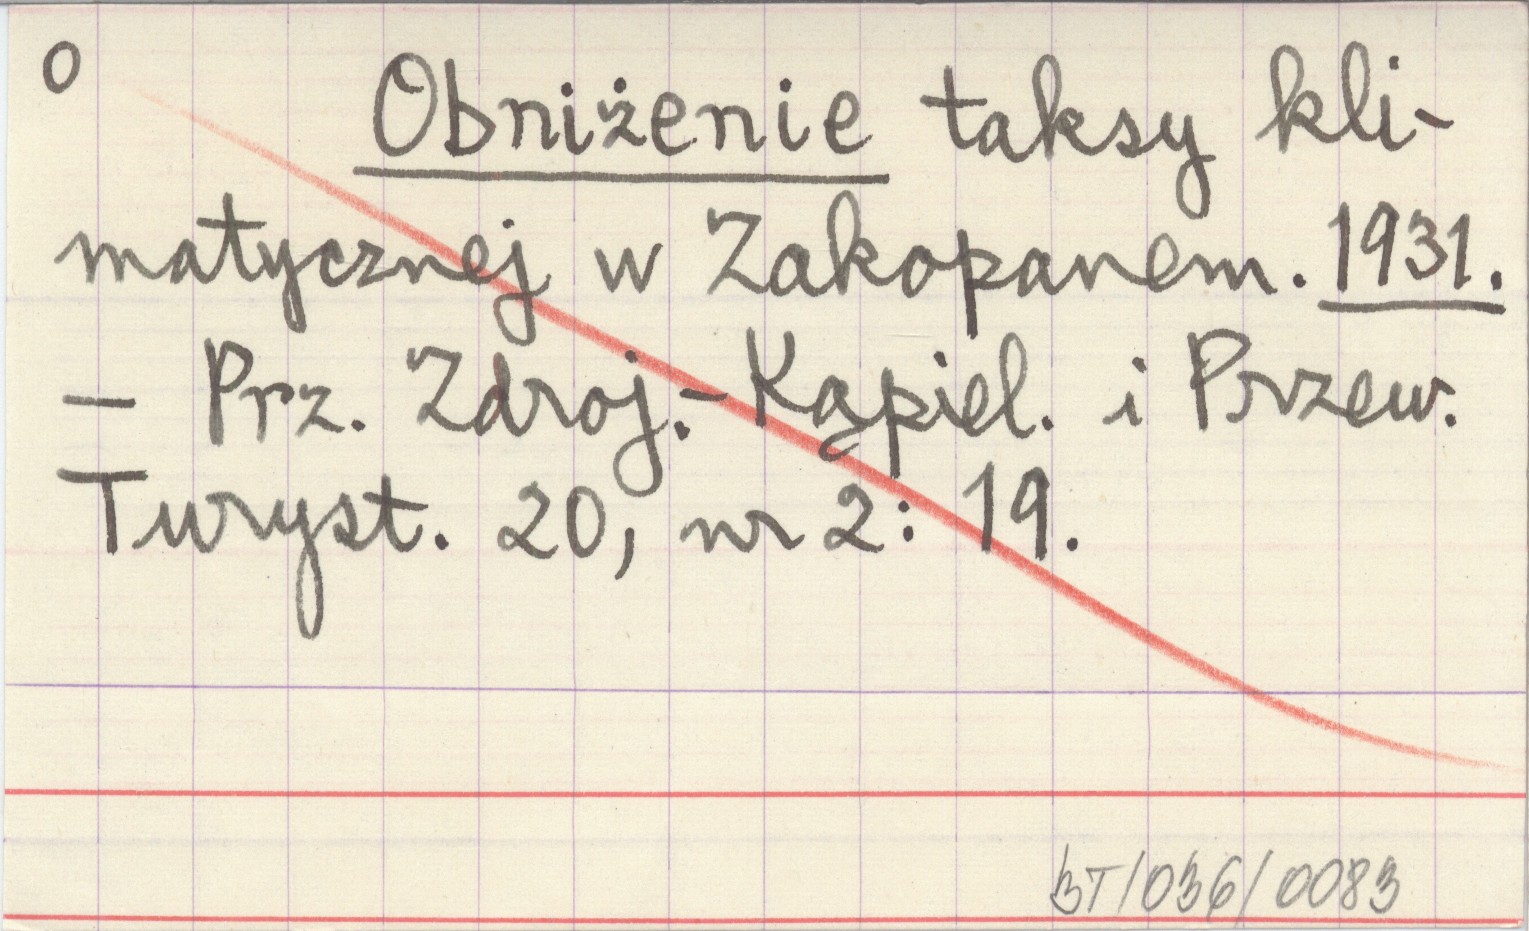 O
Obniżenie taksy kli-
matycznej w Zakopanem. 1931.
– Prz. Zdroj.-Kąpiel. i Przew.
Turyst. 20, nr 2: 19.
BT/036/0083